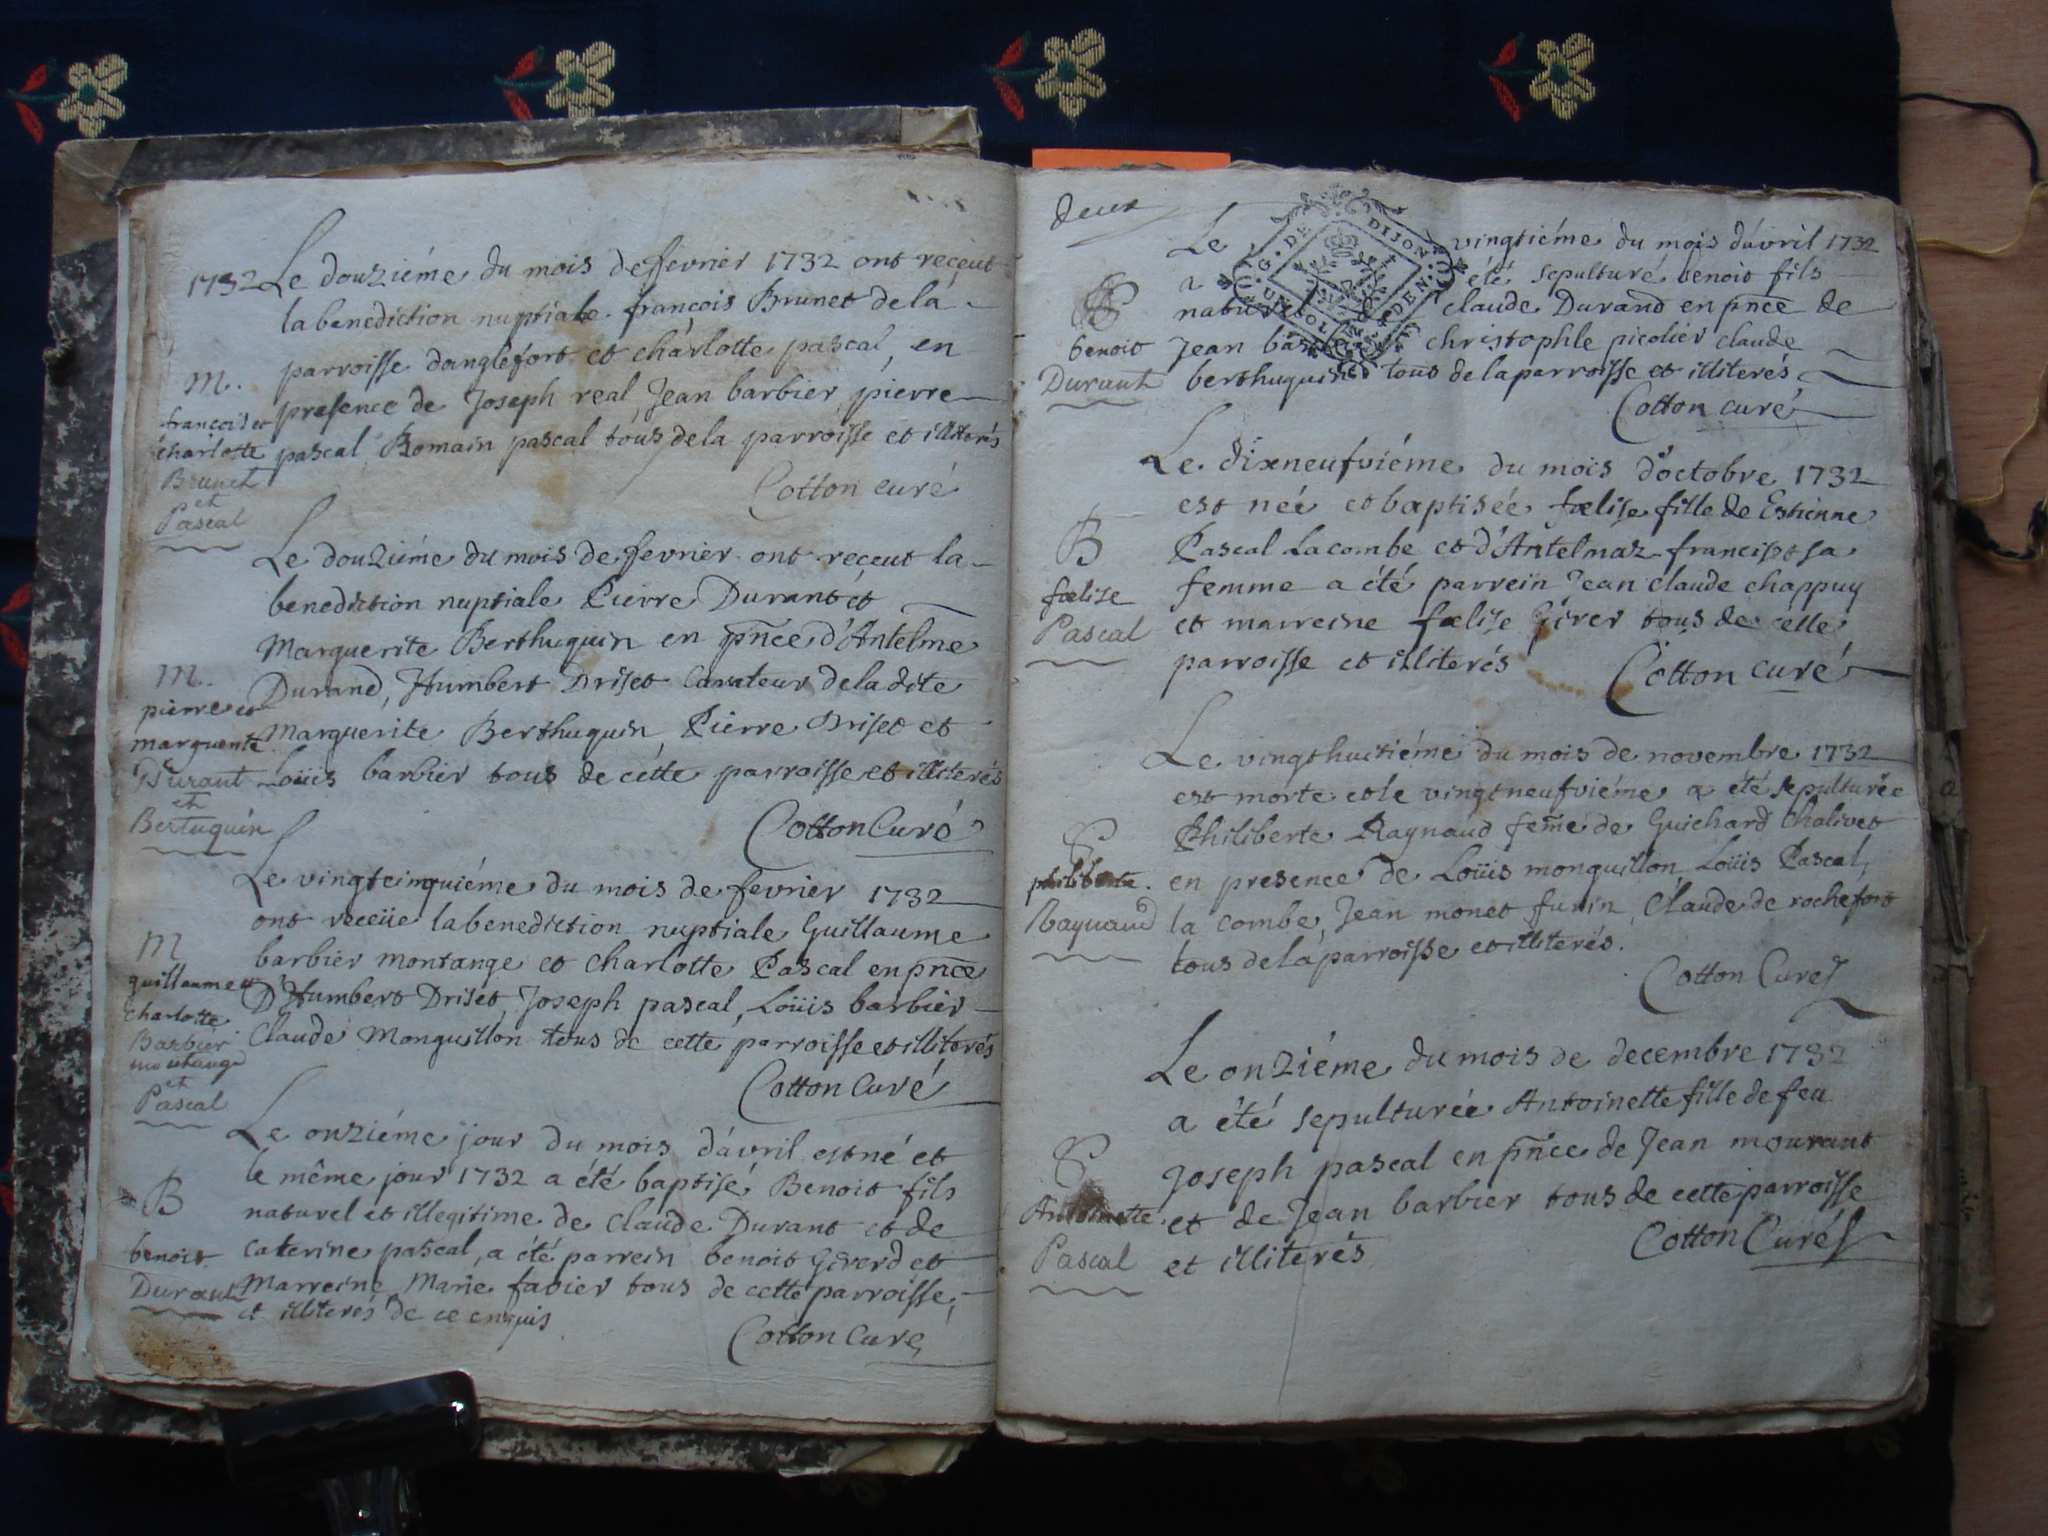 1732
Le douziéme du mois de fevrier 1732 ont reçeut
la benediction nuptiale francois Brunet de la
parroisse danglefort et charlotte pascal, en
presence de Joseph real, Jean barbier pierre
pascal Romain pascal tous de la parroisse et illiterés
Cotton curé
M.
francois et
charlotte
Brunet
et
Pascal
Le douziéme du mois de fevrier ont reçeut la
benediction nuptiale Pierre Durant et
Marguerite Berthuguin en pnce d'Antelme
Durand, Humbert Driset Curateur de la dite
Marguerite Berthuguin Pierre Driset et
Loüis barbier tous de cétte parroisse et illiterés
Cotton Curé
M.
pierre et
marguerite
Durant
et
Bertuguin
Le vingtcinquiéme du mois de fevrier 1732
ont receüe la benediction nuptiale Guillaume
barbier montange et charlotte Pascal en pnce
D'Humbert Driset, Joseph pascal, Loüis barbier
Claude Monguillon tous de cette parroisse et illiterés
Cotton Curé
M
guillaume et
charlotte
Barbier
montange
et
Pascal
Le onziéme jour du mois d'avril est né et
le même jour 1732 a été baptisé Benoit fils
naturel et illegitime de Claude Durant et de
Caterine pascal, a été parrein benoit Girerd et
Marreine Marie favier tous de cette parroisse,
et illiterés de ce enquis
Cotton Cure
B
benoit
Durant
deux
G. DE DIJON
Le vingtiéme du mois d'avril 1732
a été sepulturé benoit fils
naturel claude Durand en pnce de
Jean christophle picolier claude
berthuguin tous de la parroisse et illiterés
Cotton curé
S
benoit
Durant
Le dixneufviéme du mois d'octobre 1732
est née et baptisée fœlise fille de Estienne
Pascal Lacombe et d'Antelmaz francisot sa
femme a été parrein Jean Claude chappuy
et marreine fœlise Girer tous de cette
parroisse et illiterés
Cotton curé
B
fœlise
Pascal
Le vingthuitiéme du mois de novembre 1732
est morte et le vingtneufviéme a été sepulturée
Philiberte Raynaud feme de Guichard Chalivet
en presence de Loüis monguillon Loüis Pascal,
la combe, Jean monet furin, Claude de rochefort
tous de la parroisse et illiterés.
Cotton Curé
S
philiberte
Raynaud
Le onziéme du mois de decembre 1732
a été sepulturée Antoinette fille de feu
Joseph pascal en pnce de Jean mourant
et de Jean barbier tous de cette parroisse
et illiterés
Cotton Curé
S
Antoinette
Pascal